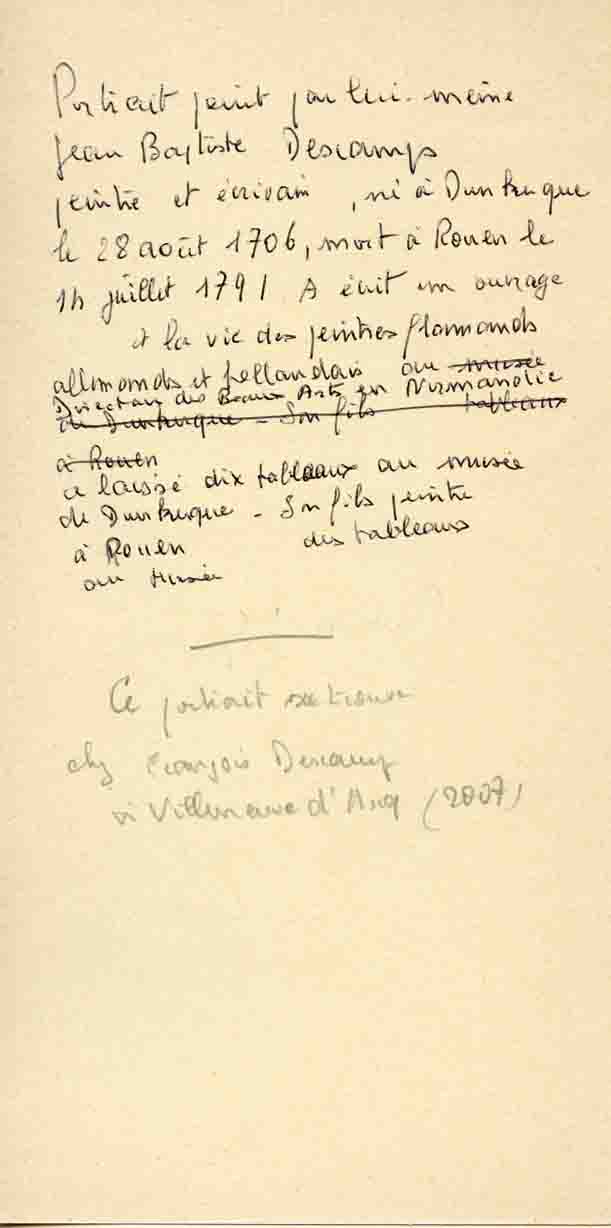 Portrait peint par lui-même
Jean Baptiste Descamps
peintre et écrivain, né à Dunkerque
le 28 août 1706, mort à Rouen le
14 juillet 1791 A écrit un ouvrage
et la vie des peintres flamands
allemands et hollandais au musée
Directeur des Beaux Arts en Normandie
de Dunkerque - Son fils tableaux
à Rouen
a laissé dix tableaux au musée
de Dunkerque - Son fils peintre
à Rouen des tableaux
au Musée
Ce portrait se trouve
chez François Descamps
à Villeneuve d'Ascq (2007)